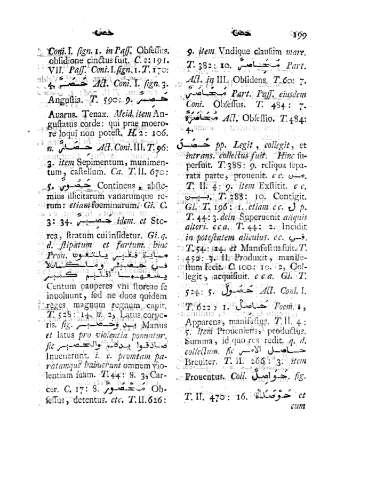 حصن حصن 199
Conj. I. sign. 1. in Pass. Obsessus,
obsidione cinctus fuit. C. 2: 191.
VII. Pass. Conj. I. sign. 1. T. 170:
4. حَصْر Act. Conj. I. sign. 3.
Angustia. T. 590: 9. حَصِر
Avarus. Tenax. Meid. item An-
gustatus corde: qui prae moero-
re loqui non potest. H. 2: 106.
n. حصار Act. Conj. III. T. 96:
3. item Sepimentum, munimen-
tum, castellum. Ca. T. II. 670:
5. حصور Continens, abste-
mius illicitarum variarumque re-
rum: etiam foeminarum. Gl. C.
3: 34. حصير idem. et Sto-
rea, stratum cui insidetur. Gl. q.
d. stipatum et fartum. hinc
Prov.
Centum pauperes uni storeae se
involvunt, sed ne duos quidem
reges magnum regnum capit.
T. 528: 14. n. 2. Latus corpo-
ris. fig. يد وحصير Manus
et latus pro violentia ponuntur.
sic
Invenerunt. i. e. promtam pa-
ratamque habuerunt omnem vio-
lentiam fatim. T. 44: 8. 3. Car-
cer. C. 17: 8. محصور Ob-
sessus, detentus. etc. T. II. 626:
9. item Undique clausim mare.
T. 382: 10. محاصر Part.
Act. in III. Obsidens. T. 60: 7.
محاصر Part. Pass. ejusdem
Conj. Obsessus. T. 484: 7.
محاصرة Act. Obsessio. T. 484:
4.
حصل pp. Legit, collegit, et
intrans. collectus fuit. Hinc su-
perfuit. T. 388: 9. reliqua sepa-
rata parte, provenit. cc. من
T. II. 4: 9. item Exstitit. c c.
من T. 288: 10. Contigit.
Gl. T. 196: 1. etiam cc. ل
T. 44: 2. dein Supervenit aliquis
alteri. cc a. T. 44: 2. Incidit
in potestatem alicuius. cc. في
T. 54: 14. et Mansefactus fuit. T.
452: 3. II. Produxit, manife-
stum fecit. C. 100: 10. 2. Col-
legit, acquisivit. cc a. Gl. T.
524: 5. حصول Act. Conj. I.
T. 622: 1. حاصل Foem. 1,
Apparens, manifestus. T. II. 4:
5. item Proveniens, productus.
Summa, id quo res redit. q. d.
collectum. sic حاصل الأمر
Breviter. T. II. 266: 3. item
Proventus. Coll. حواصل. sig.
T. II. 470: 16. حوصلة et
cum